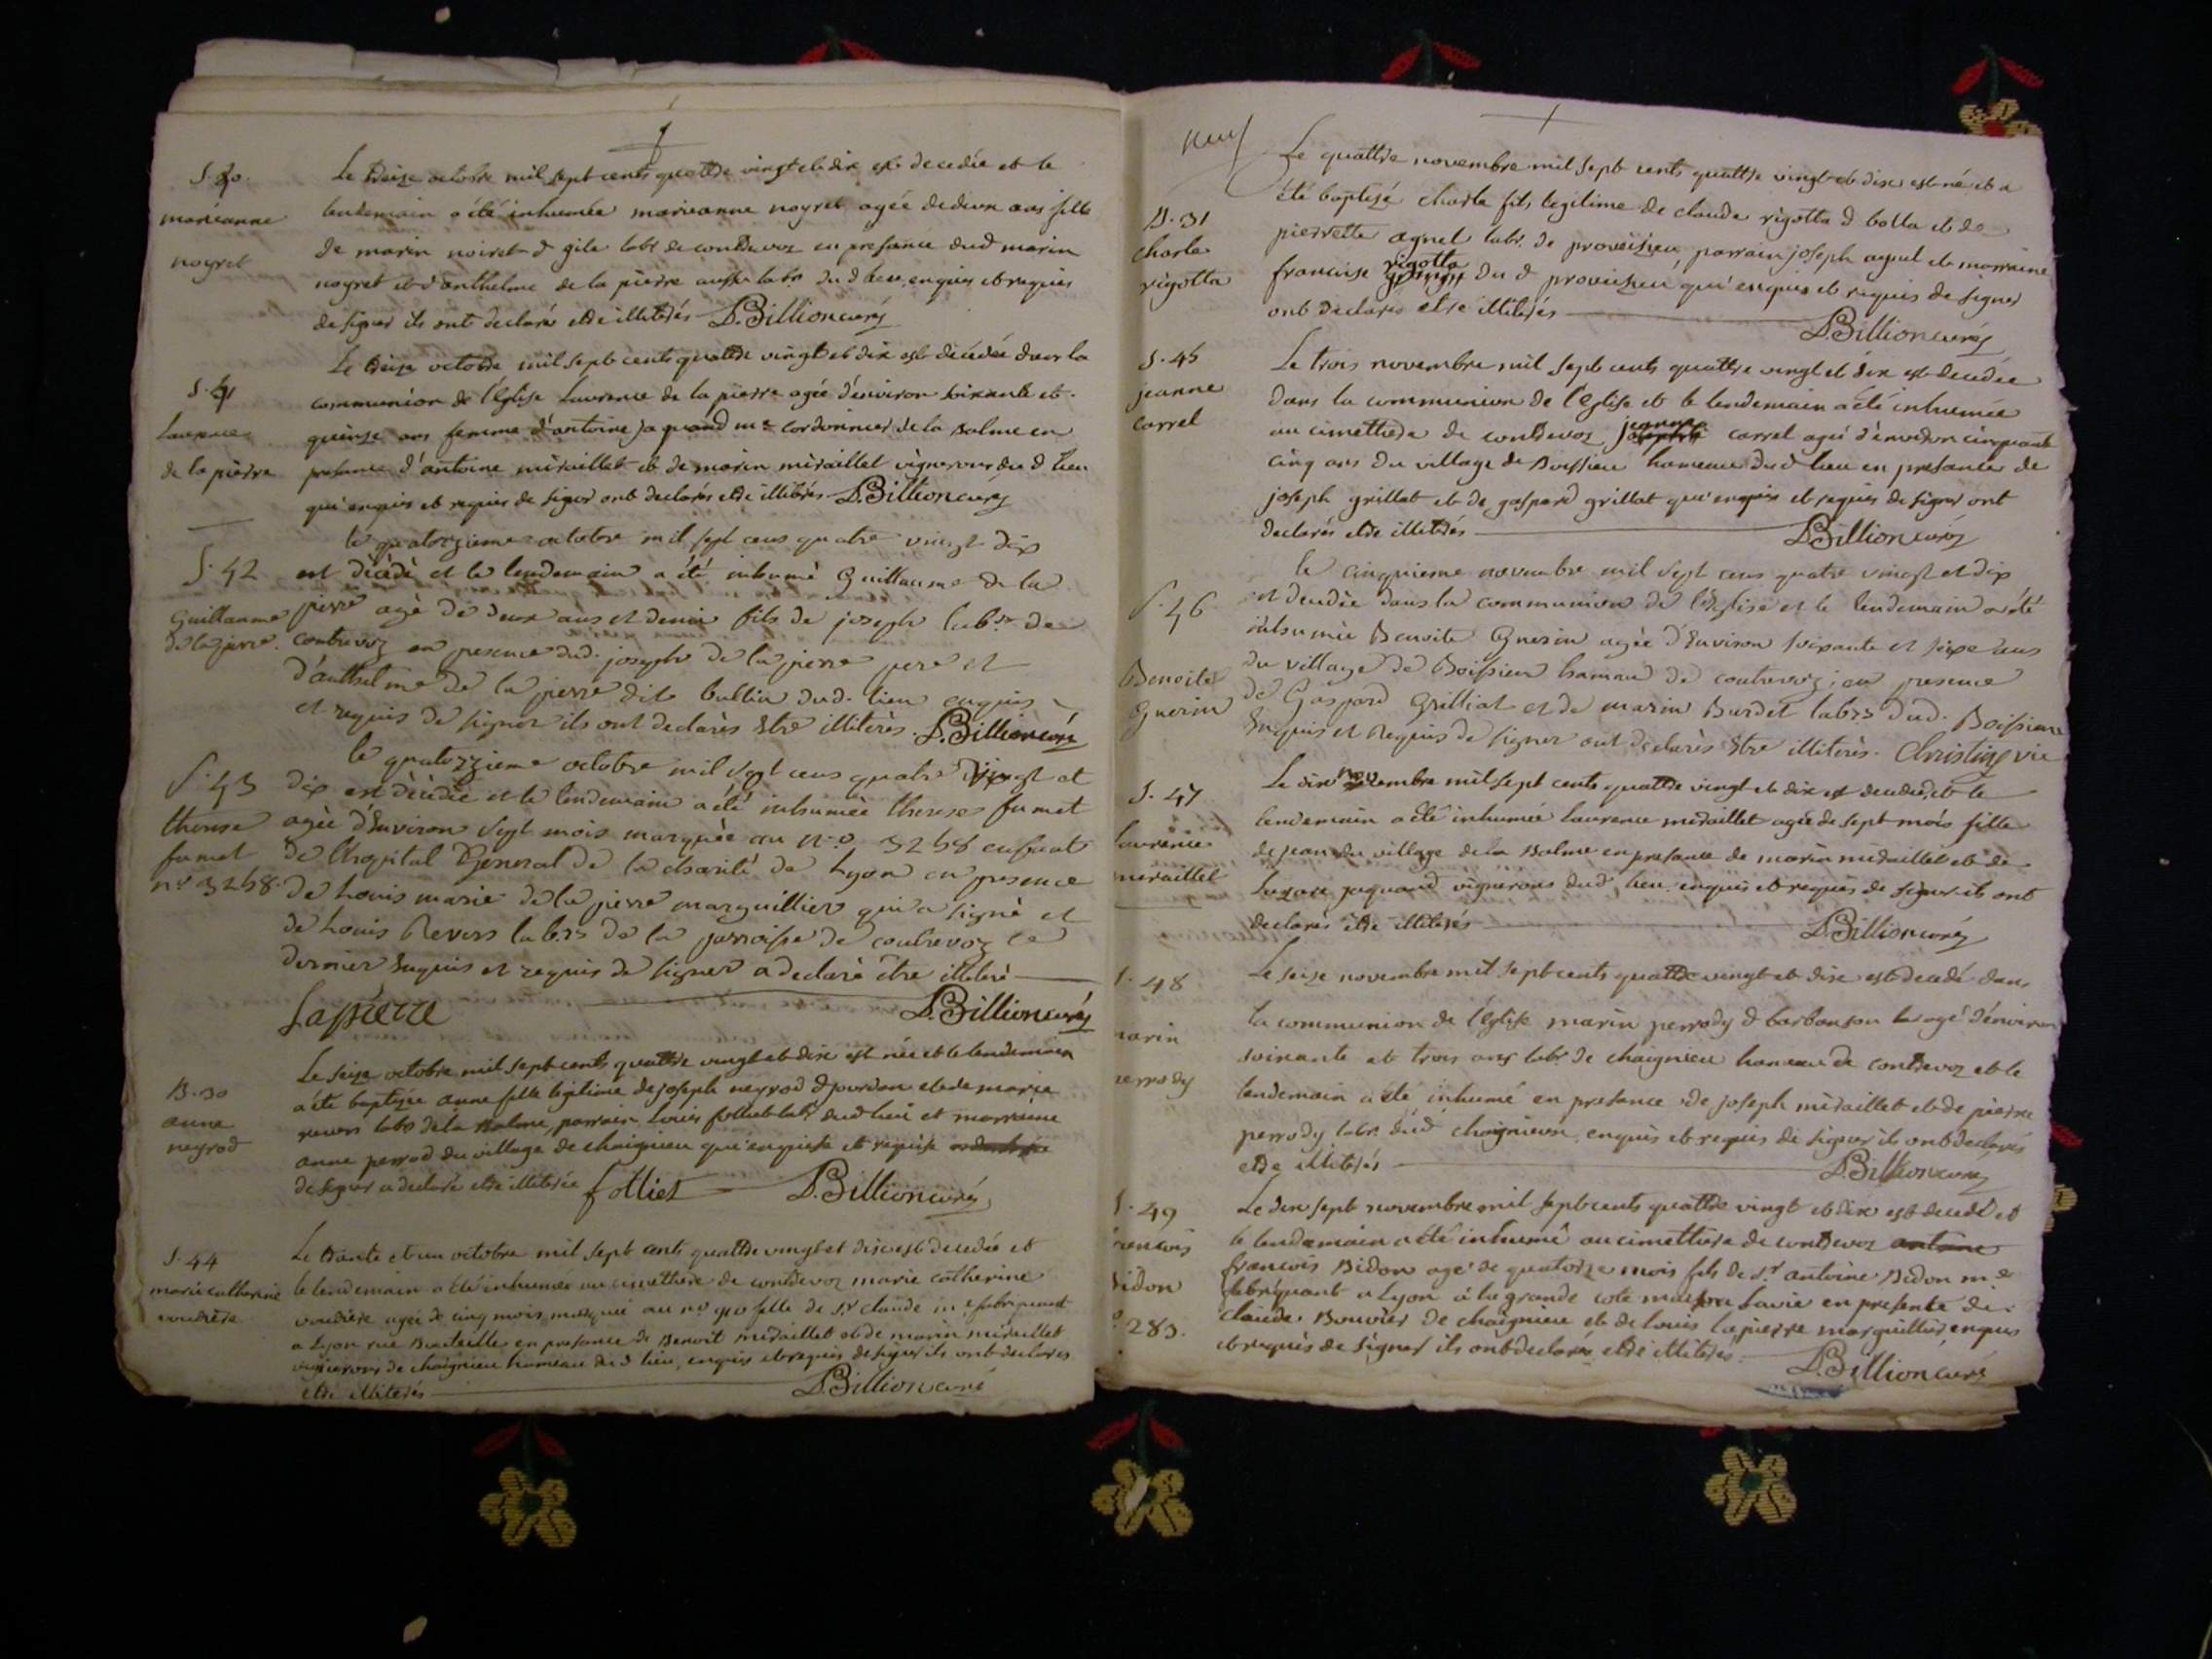 S. 40.
marieanne
noyret
Le treize octobre mil sept cents quattre vingt et dix est decedée et le
lendemain a été inhumée marieanne noyret agée de deux ans fille
de marin noiret d gile labr de contrevoz en presance dud marin
noyret et d'anthelme de la pierre aussi labr du d lieu, enquis et requis
de signer ils ont declaré etre illiterés D. Billion curé
S. 41
Laurence
de la pierre
Le treize octobre mil sept cents quattre vingt et dix est décédée dans la
communion de l'église Laurence de la pierre agée d'environ soixante et
quinze ans femme d'antoine jaquand me cordonnier de la Balme en
presance d'antoine miraillet et de marin miraillet vignerons du d lieu
qui enquis et requis de signer ont declarés etre illiterés D. Billion curé
S. 42
Guillaume
de la pierre.
le quatorzieme octobre mil sept cens quatre vingt dix
est décédé et le lendemain a été inhumé Guillaume de la
pierre agé de deux ans et demi fils de joseph labr. de
contrevoz en presence dud. joseph de la pierre pere et
d'anthelme de la pierre dit bullia dud. lieu enquis
et requis de signer ils ont declarés être illiterés. D. Billion curé
S. 43
therese
fumet
no 3268.
le quatorzieme octobre mil sept cens quatre vingt et
dix est décédée et le lendemain a été inhumée therese fumet
agée d'Environ sept mois marquée au no. 3268 enfant
de l'hopital General de la charité de Lyon en presence
de Louis marie de la pierre marguillier qui a signé et
de Louis Revers labrs de la parroisse de contrevoz ce
dernier Enquis et requis de signer a declaré être illiteré
Lapierre D. Billion curé
B. 30
anne
neyrod
Le seize octobre mil sept cents quattre vingt et dix est née et le lendemain
a été baptize anne fille legitime de joseph neyrod d jourdan et de marie
revers labr de la Balme, parrain Louis folliet labr dud lieu et marraine
anne perrod du village de chaignieu qui enquise et requise
de signer a declaré etre illiterée folliet D. Billion curé
S. 44
marie catherine
voudiere
Le trante et un octobre mil sept cents quattre vingt et dix est decedée et
le lendemain a été inhumée au cimettiere de contrevoz marie catherine
voudiere agée de cinq mois, marquée au no 910 fille de Sr claude me fabriquant
a Lyon rue Bouteille en presance de Benoit miraillet et de marin miraillet
vignerons de chaignieu hameau du d lieu, enquis et requis de signer ils ont declarés
etre illiterés D. Billion curé
neuf
B. 31
charle
rigotta
Le quattre novembre mil sept cents quattre vingt et dix est né et a
été baptizé charle fils legitime de claude rigotta d bolla et de
pierrette agnel labr. de proveizieu, parrain joseph agnel et marraine
rigotta
francoise du d proveizieu qui enquis et requis de signer
ont declarés etre illiterés D. Billion curé
S. 45
jeanne
carrel
Le trois novembre mil sept cents quattre vingt et dix est decedée
dans la communion de l'église et le lendemain a été inhumée
au cimettiere de contrevoz jeanne carrel agée d'environ cinquante
cinq ans du village de Boissieu hameau dud lieu en presance de
joseph grillat et de gaspard grillat qui enquis et requis de signer ont
declarés etre illiterés D. Billion curé
S. 46
Benoite
Guerin
le cinquieme novembre mil sept cens quatre vingt et dix
est decedée dans la communion de l'Eglise et le lendemain a été
inhumée Benoite Guerin agée d'Environ soixante et seize ans
du village de Boissieu hameau de contrevoz; en presence
de Gaspard Grilliat et de marin Burdet labrs dud. Boissieu
Enquis et Requis de signer ont declarés être illiterés. Christin vic
S. 47
laurence
miraillet
Le dix novembre mil sept cents quattre vingt et dix est decedée, et le
lendemain a été inhumée laurence miraillet agée de sept mois fille
de jean du village de la Balme en presance de marin miraillet et de
jaquand vignerons dud lieu, enquis et requis de signer ils ont
declarés etre illiterés D. Billion curé
S. 48
marin
perrody
Le seize novembre mil sept cents quattre vingt et dix est decedé dans
la communion de l'église marin perrody d agé d'environ
soixante et trois ans labr. de chaignieu hameau de contrevoz et le
lendemain a été inhumé en presance de joseph miraillet et de pierre
perrody labr. dud chaignieu, enquis et requis de signer ils ont declarés
etre illiterés D. Billion curé
S. 49
francois
Bidon
283.
Le dix sept novembre mil sept cents quattre vingt et dix est decedé et
le lendemain a été inhumé au cimettiere de contrevoz antoine
francois Bidon agé de quatorze mois fils de Sr antoine Bidon me
fabriquant a Lyon a la grande cote en presente de
claude Bouvier de chaignieu et de louis lapierre marguillier, enquis
et requis de signer ils ont declarés etre illiterés. D. Billion curé